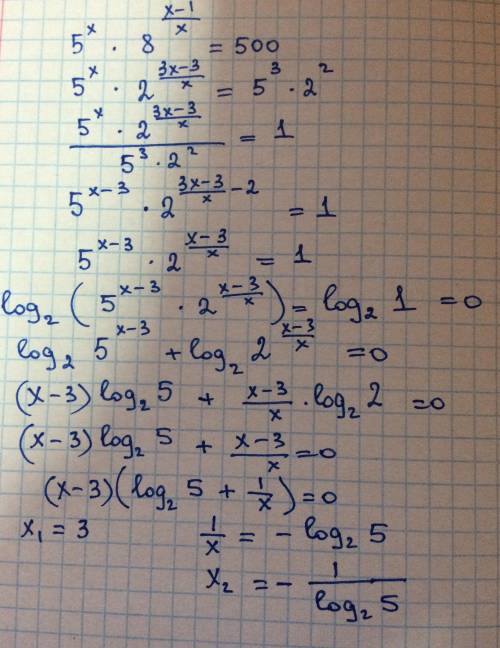 5^x · 8^((x-1)/x) = 500
5^x · 2^((3x-3)/x) = 5^3 · 2^2
(5^x · 2^((3x-3)/x))/(5^3 · 2^2) = 1
5^(x-3) · 2^((3x-3)/x - 2) = 1
5^(x-3) · 2^((x-3)/x) = 1
log_2 (5^(x-3) · 2^((x-3)/x)) = log_2 1 = 0
log_2 5^(x-3) + log_2 2^((x-3)/x) = 0
(x-3) log_2 5 + (x-3)/x · log_2 2 = 0
(x-3) log_2 5 + (x-3)/x = 0
(x-3)(log_2 5 + 1/x) = 0
x_1 = 3    1/x = - log_2 5
x_2 = - 1/(log_2 5)